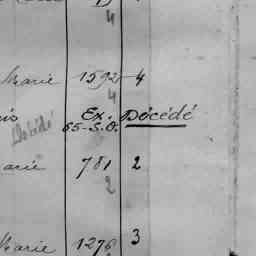 4
Marie 1592 4
4
Ex. Décédé
65-S.O.
Décédé
arie 781 2
2
Marie 1276 3